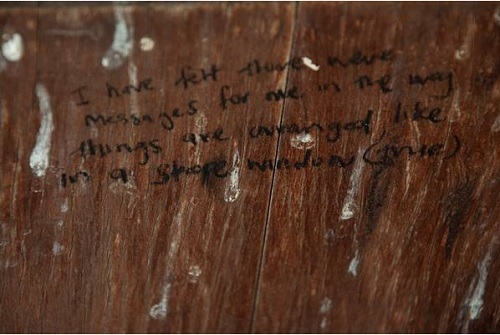 I have felt there were
messages for me in the way
things are arranged, like
in a store window (true)